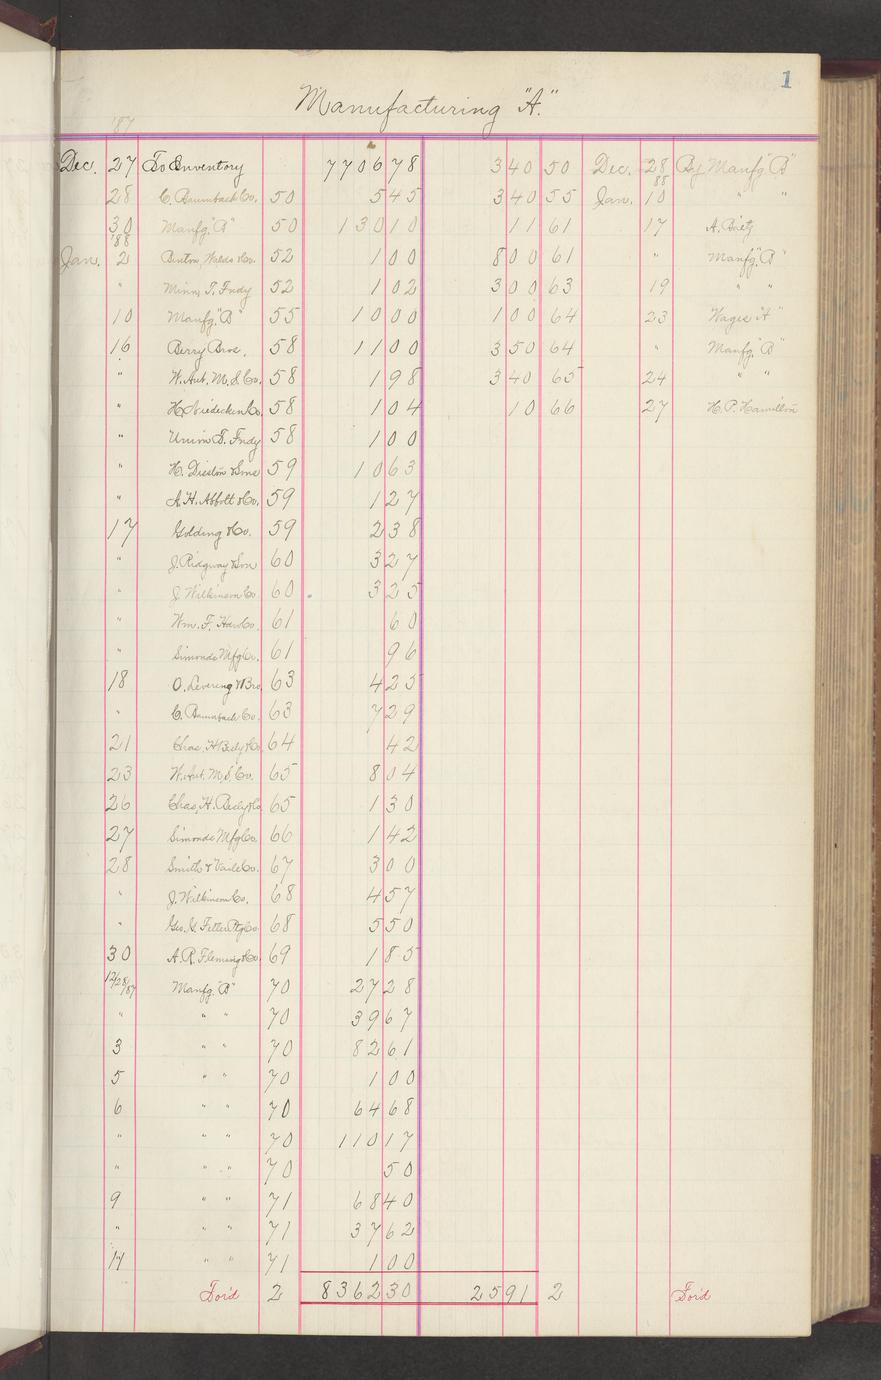 1
Manufacturing "A."
'87
Dec. 27 To Inventory 7706 78 3 40 50 Dec. 28 By Manfg. "B"
28 C. Baumbach Co. 50 5 45 3 40 55 Jan. '88 10 " "
30 Manfg. "B" 50 130 10 11 61 17 A.
Jan. '88 2 Benton, Waldo & Co. 52 1 00 8 00 61 " Manfg. "B"
" Minn. T. Fndy 52 1 02 3 00 63 19 " "
10 Manfg. "B" 55 10 00 1 00 64 23 Wages "A"
16 Berry Bros. 58 11 00 3 50 64 " Manfg. "B"
" W. Aut. M. S. Co. 58 1 98 3 40 65 24 " "
" H. Niedecken Co. 58 1 04 10 66 27 H. P. Hamilton
" Union S. Fndy 58 1 00
" H. Disston & Sons 59 10 63
" A. H. Abbott & Co. 59 1 27
17 Golding & Co. 59 2 38
" J. Ridgway & Son 60 3 27
" J. Wilkinson Co 60 3 25
" Wm. F. Co. 61 60
" Simonds Mfg Co. 61 96
18 O. Levering & Bro. 63 4 25
" C. Baumbach Co. 63 7 29
21 Chas. H. Besly & Co 64 42
23 W. Aut. M. S. Co. 65 8 04
26 Chas. H. Besly & Co 65 1 30
27 Simonds Mfg Co. 66 1 42
28 Smith & Vaile Co. 67 3 00
" J. Wilkinson Co. 68 4 57
" Geo. Co. 68 5 50
30 A. R. Fleming & Co. 69 1 85
12/28/87 Manfg. "B" 70 27 28
" " " 70 39 67
3 " " 70 82 61
5 " " 70 1 00
6 " " 70 64 68
" " " 70 110 17
" " " 70 50
9 " " 71 68 40
" " " 71 37 62
14 " " 71 1 00
For'd 2 8362 30 25 91 2 For'd